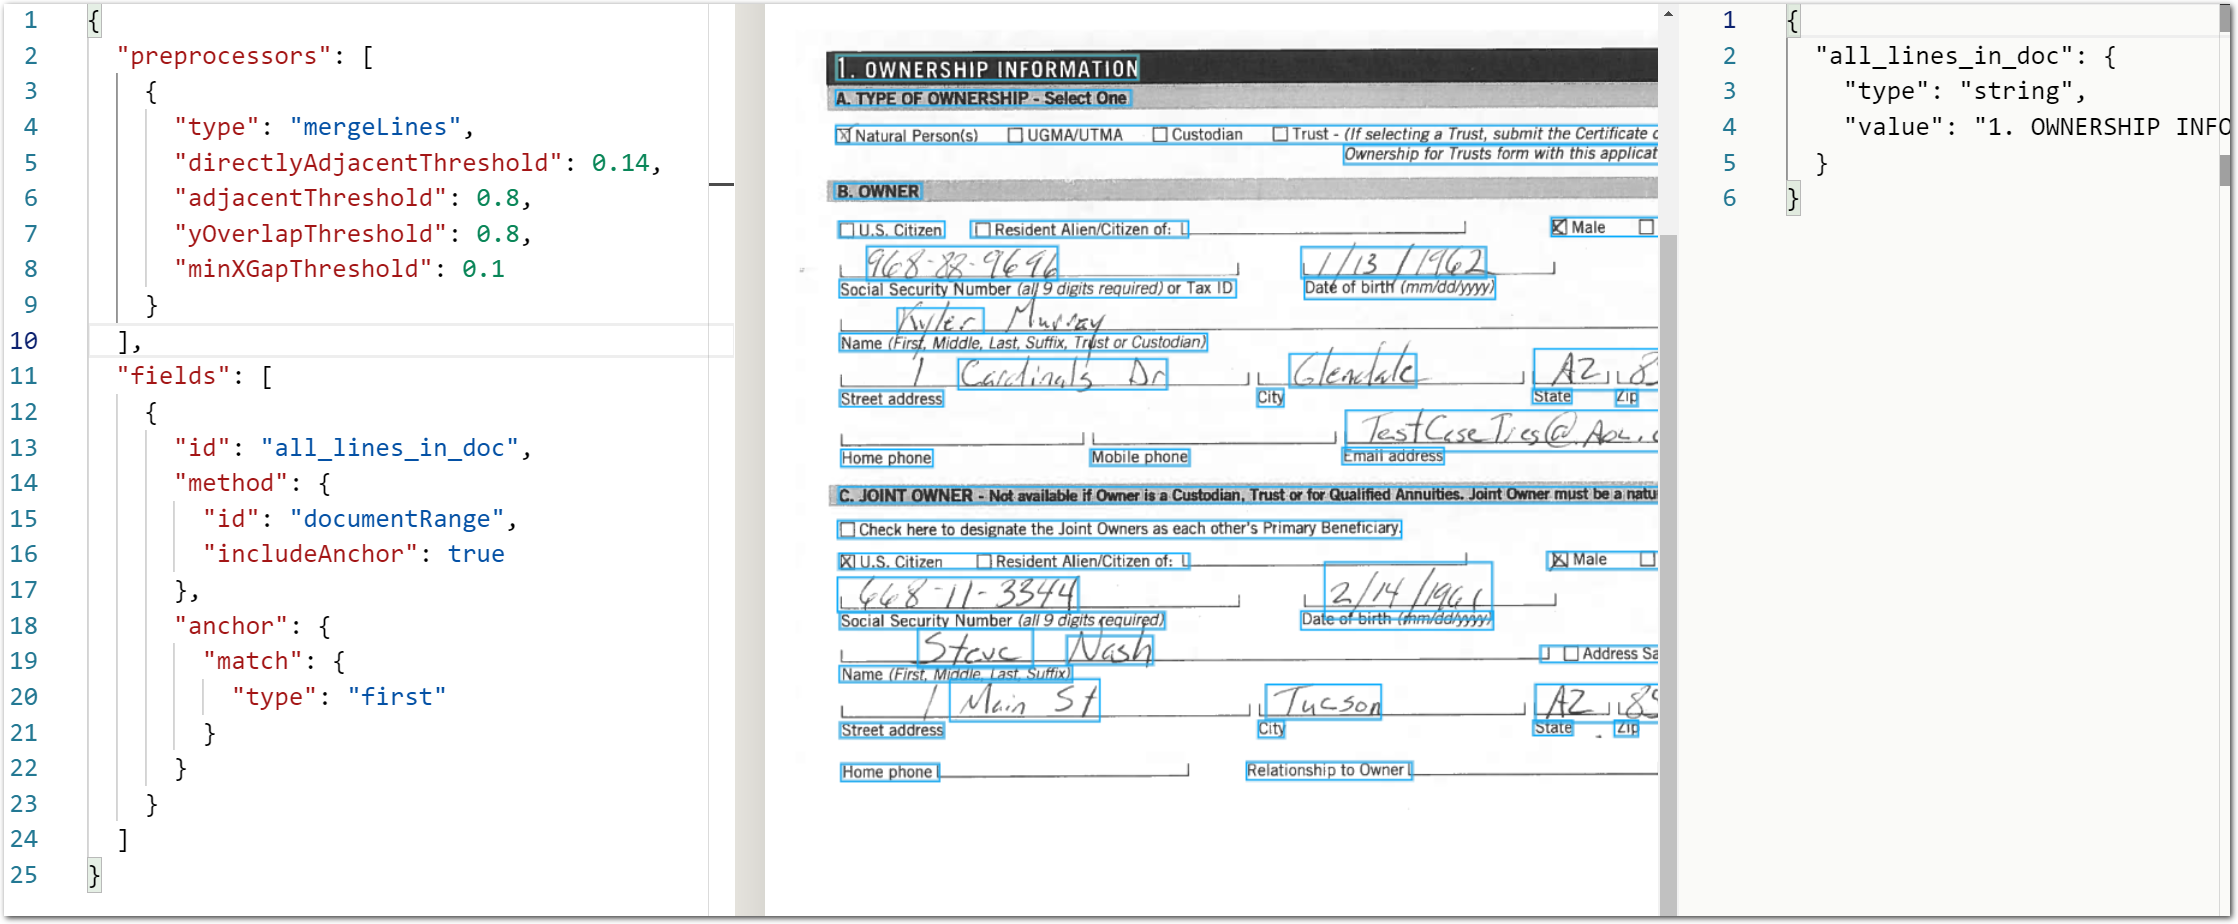 1 {
2 "preprocessors": [
3 {
4 "type": "mergeLines",
5 "directlyAdjacentThreshold": 0.14,
6 "adjacentThreshold": 0.8,
7 "yOverlapThreshold": 0.8,
8 "minXGapThreshold": 0.1
9 }
10 ],
11 "fields": [
12 {
13 "id": "all_lines_in_doc",
14 "method": {
15 "id": "documentRange",
16 "includeAnchor": true
17 },
18 "anchor": {
19 "match": {
20 "type": "first"
21 }
22 }
23 }
24 ]
25 }
1. OWNERSHIP INFORMATION
A. TYPE OF OWNERSHIP - Select One
☒ Natural Person(s) ☐ UGMA/UTMA ☐ Custodian ☐ Trust - (If selecting a Trust, submit the Certificate o
Ownership for Trusts form with this applicat
B. OWNER
☐ U.S. Citizen ☐ Resident Alien/Citizen of: ☒ Male ☐
968-88-9696 1/13/1962
Social Security Number (all 9 digits required) or Tax ID Date of birth (mm/dd/yyyy)
Kyler Murray
Name (First, Middle, Last, Suffix, Trust or Custodian)
1 Cardinals Dr Glendale AZ 85
Street address City State Zip
TestCaseTies@Aol.c
Home phone Mobile phone Email address
C. JOINT OWNER - Not available if Owner is a Custodian, Trust or for Qualified Annuities. Joint Owner must be a natu
☐ Check here to designate the Joint Owners as each other's Primary Beneficiary.
☒ U.S. Citizen ☐ Resident Alien/Citizen of: ☒ Male ☐
668-11-3344 2/14/1961
Social Security Number (all 9 digits required) Date of birth (mm/dd/yyyy)
Steve Nash ☐ Address Sa
Name (First, Middle, Last, Suffix)
1 Main St Tucson AZ 85
Street address City State Zip
Home phone Relationship to Owner
1 {
2 "all_lines_in_doc": {
3 "type": "string",
4 "value": "1. OWNERSHIP INFO
5 }
6 }